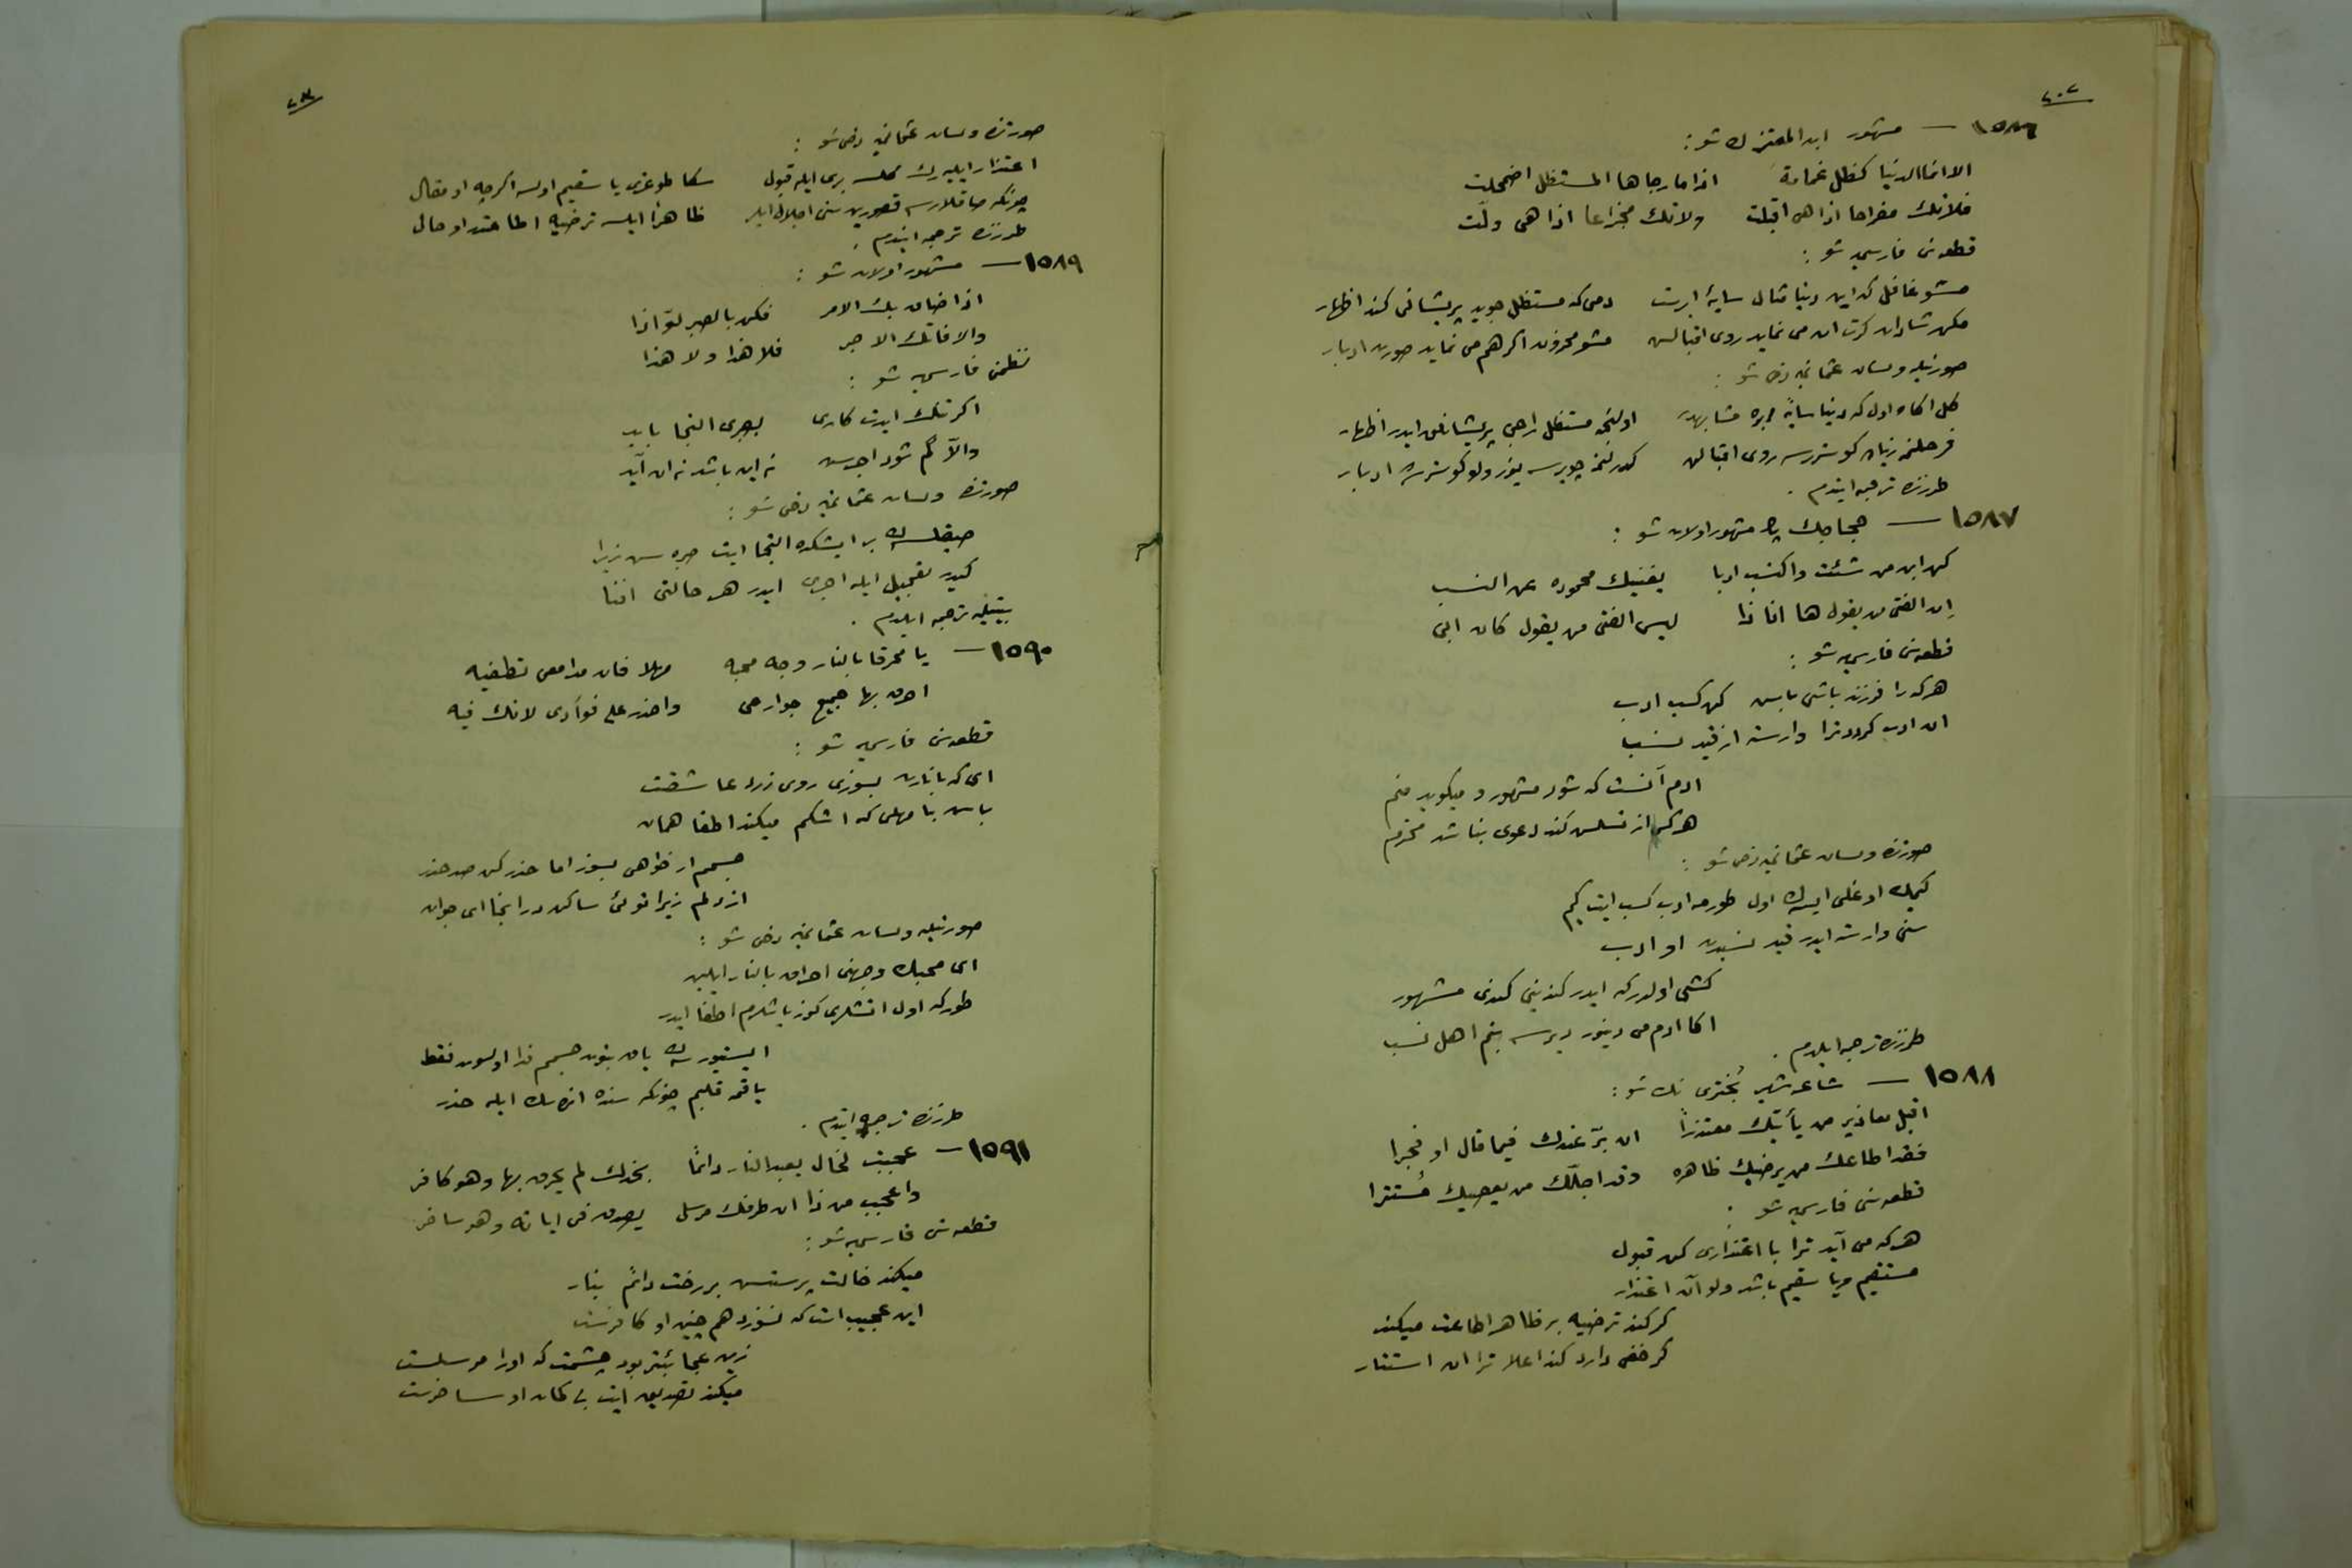 ٤٠٢
١٥٨٦ — مشهور ابن المعتزك شو :
الا انما الدنيا كظل غمامة اذا ما رجاها المستظل اضمحلت
فلاتك مفراحا اذا هى اقبلت ولاتك مجزاعا اذا هى ولّت
قطعه‌سى فارسيجه شو :
مشو غافل كه اين دنيا مثال سايۀ ابرست دمى كه مستظل جويد پريشانى كند اظهار
مكن شادان كرت ان مى نمايد روى اقبالس مشو محزون اكر هم مى نمايد صورت ادبار
صورتيله ولسان عثمانيه دخى شو :
كل اكاه اول كه دنيا سايۀ ابره مشابهدر اولنجه مستظل راجى پريشانلق ايدر اظهار
فرحلنمه زياده كوسترسه روى اقبالن كدرلنمه چويرسه يوز ولو كوسترسه ادبار
طرزنده ترجمه ايتدم .
١٥٨٧ — حجاجك پك مشهور اولان شو :
كن ابن من شئت واكتسب ادبا يغنيك محموده عن النسب
ان الفتى من يقول ها انا ذا ليس الفتى من يقول كان ابى
قطعه‌سى فارسيجه شو :
هركه را فرزند باشى باس كن كسب ادب
ان ادب كردد ترا وارسته از قيد نسب
ادم آنست كه شود مشهور و ميكويد منم
هركس از نسلس كند دعوى نباشد محترم
صورتنده ولسان عثمانيه دخى شو :
كيمك اوغلى ايسه‌ك اول طورمه ادب كسب ايت كيم
سنى وارسته ايدر قيد نسبدن او ادب
كشى اولدر كه ايدر كندينى كندى مشهور
اكا ادم مى دينور ديرسه بنم اهل نسب
طرزنده ترجمه ايلدم .
١٥٨٨ — شاعر شهير بُحترى نك شو :
اقبل معاذير من يأتيك معتذراً ان برّ عندك فيما قال او فجرا
فقد اطاعك من يرضيك ظاهره وقد اجلّك من يعصيك مُستترا
قطعه‌سى فارسيجه شو :
هركه مى آيد ترا با اعتذارى كن قبول
مستقيم ويا سقيم باشد ولو آن اعتذار
كر كند ترضيه بر ظاهر اطاعت ميكند
كر خفى دارد كند اعلا ترا ان استتار
٤٠٣
صورتنده ولسان عثمانيه دخى شو :
اعتذار ايليه‌رك كلسه برى ايله قبول سكا طوغرى يا سقيم اولسه اكرچه او مقال
چونكه صاقلارسه قصورين سنى اجلال ايلر ظاهرا ايلسه ترضيه اطاعتدر او حال
طرزنده ترجمه ايتدم .
١٥٨٩ — مشهور اولان شو :
اذا ضاق بك الامر فكن بالصبر لوّاذا
والا فاتك الاجر فلا هذا ولا هذا
نظمى فارسيجه شو :
اكر تنك ايدت كارى بصبرى التجا بايد
والّا كم شود اجرس نه اين باشد نه ان آيد
صورتنده ولسان عثمانيه دخى شو :
صيقلسه‌ك بر ايشكده التجا ايت صبره سن زيرا
كيدر تعجيل ايله اجرى ايدر هر حالتى افنا
بيتيله ترجمه ايلدم .
١٥٩٠ — يا محرقا بالنار وجه محبه مهلا فان مدامعى تطفيه
احرق بها جميع جوارحى واحذر على فوآدى لانك فيه
قطعه‌سى فارسيجه شو :
اى كه با نارت بسوزى روى زرد عاشقت
باس با مهلى كه اشكم ميكند اطفا همان
جسمم ار خواهى بسوز اما حذر كن صد حذر
از دلم زيرا تو ئى ساكن در اينجا اى جوان
صورتيله ولسان عثمانيه دخى شو :
اى محبك وجهنى احراق بالنار ايلين
طور كه اول اتشلرى كوز ياشلرم اطفا ايدر
ايستيورسه‌ك ياق بتون جسمم فدا اولسون فقط
ياقمه قلبم چونكه سنده انده سك ايله حذر
طرزنده ترجمه ايتدم .
١٥٩١ — عجبت لخال يعبد النار دائما بخدك لم يحرق بها وهو كافر
واعجب من ذا ان طرفك مرسل يصدق فى اياته وهو ساحر
قطعه‌سى فارسيجه شو :
ميكند خالت پرستس بر رخت دائم بنار
اين عجيب است كه نسوزد هم چنين او كافرست
زين عجائبتر بود چشمت كه اورا مرسلست
ميكند تصديق ايت بى كمان او ساحرست